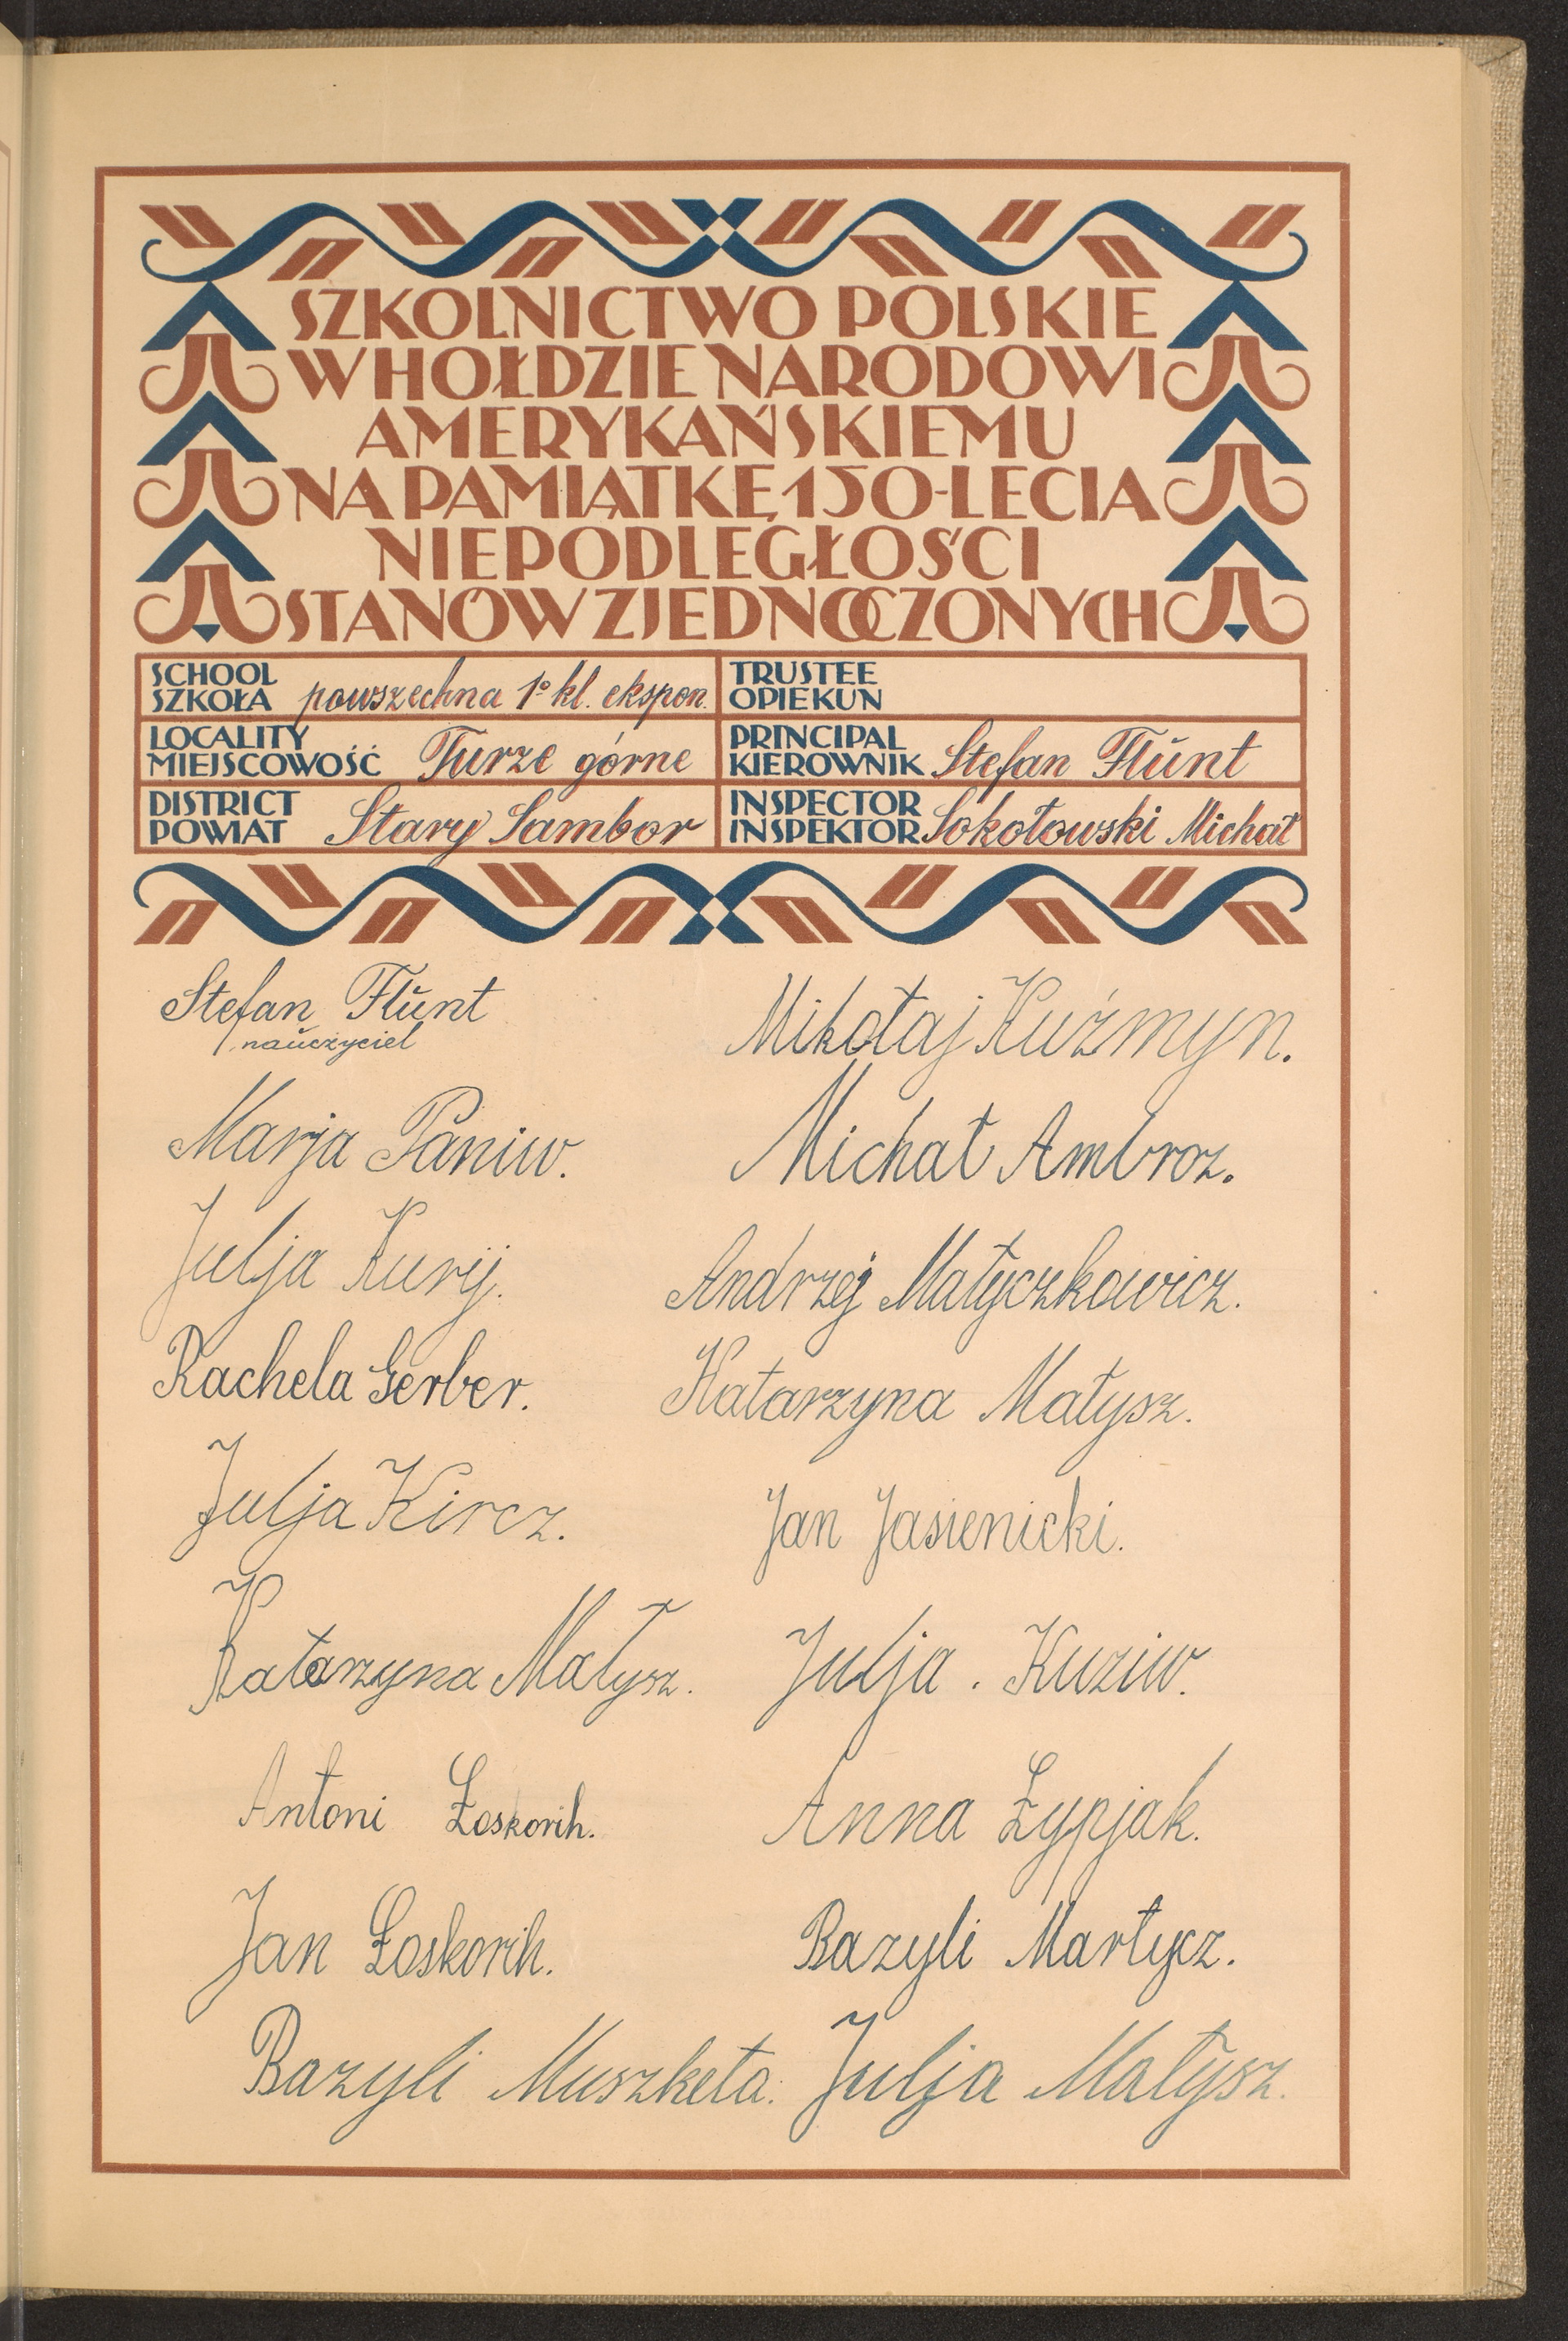 SZKOLNICTWO POLSKIE
W HOŁDZIE NARODOWI
AMERYKAŃSKIEMU
NA PAMIĄTKĘ 150-LECIA
NIEPODLEGŁOŚCI
STANÓW ZJEDNOCZONYCH
SCHOOL
SZKOŁA powszechna 1º kl. ekspon.
TRUSTEE
OPIEKUN
LOCALITY
MIEJSCOWOŚĆ Turze górne
PRINCIPAL
KIEROWNIK Stefan Flŭnt
DISTRICT
POWIAT Stary Sambor
INSPECTOR
INSPEKTOR Sokołowski Michał
Stefan Flŭnt
naŭczyciel
Marja Paniw.
Julja Kurij.
Rachela Gerber.
Julja Kircz.
Katarzyna Małysz.
Antoni Łoskorih.
Jan Łoskorih.
Bazyli Muszketa.
Mikołaj Kuźmyn.
Michał Ambroz.
Andrzej Matyczkowicz.
Katarzyna Małysz.
Jan Jasienicki.
Julja . Kuziw.
Anna Łypjak.
Bazyli Martycz.
Julja Małysz.